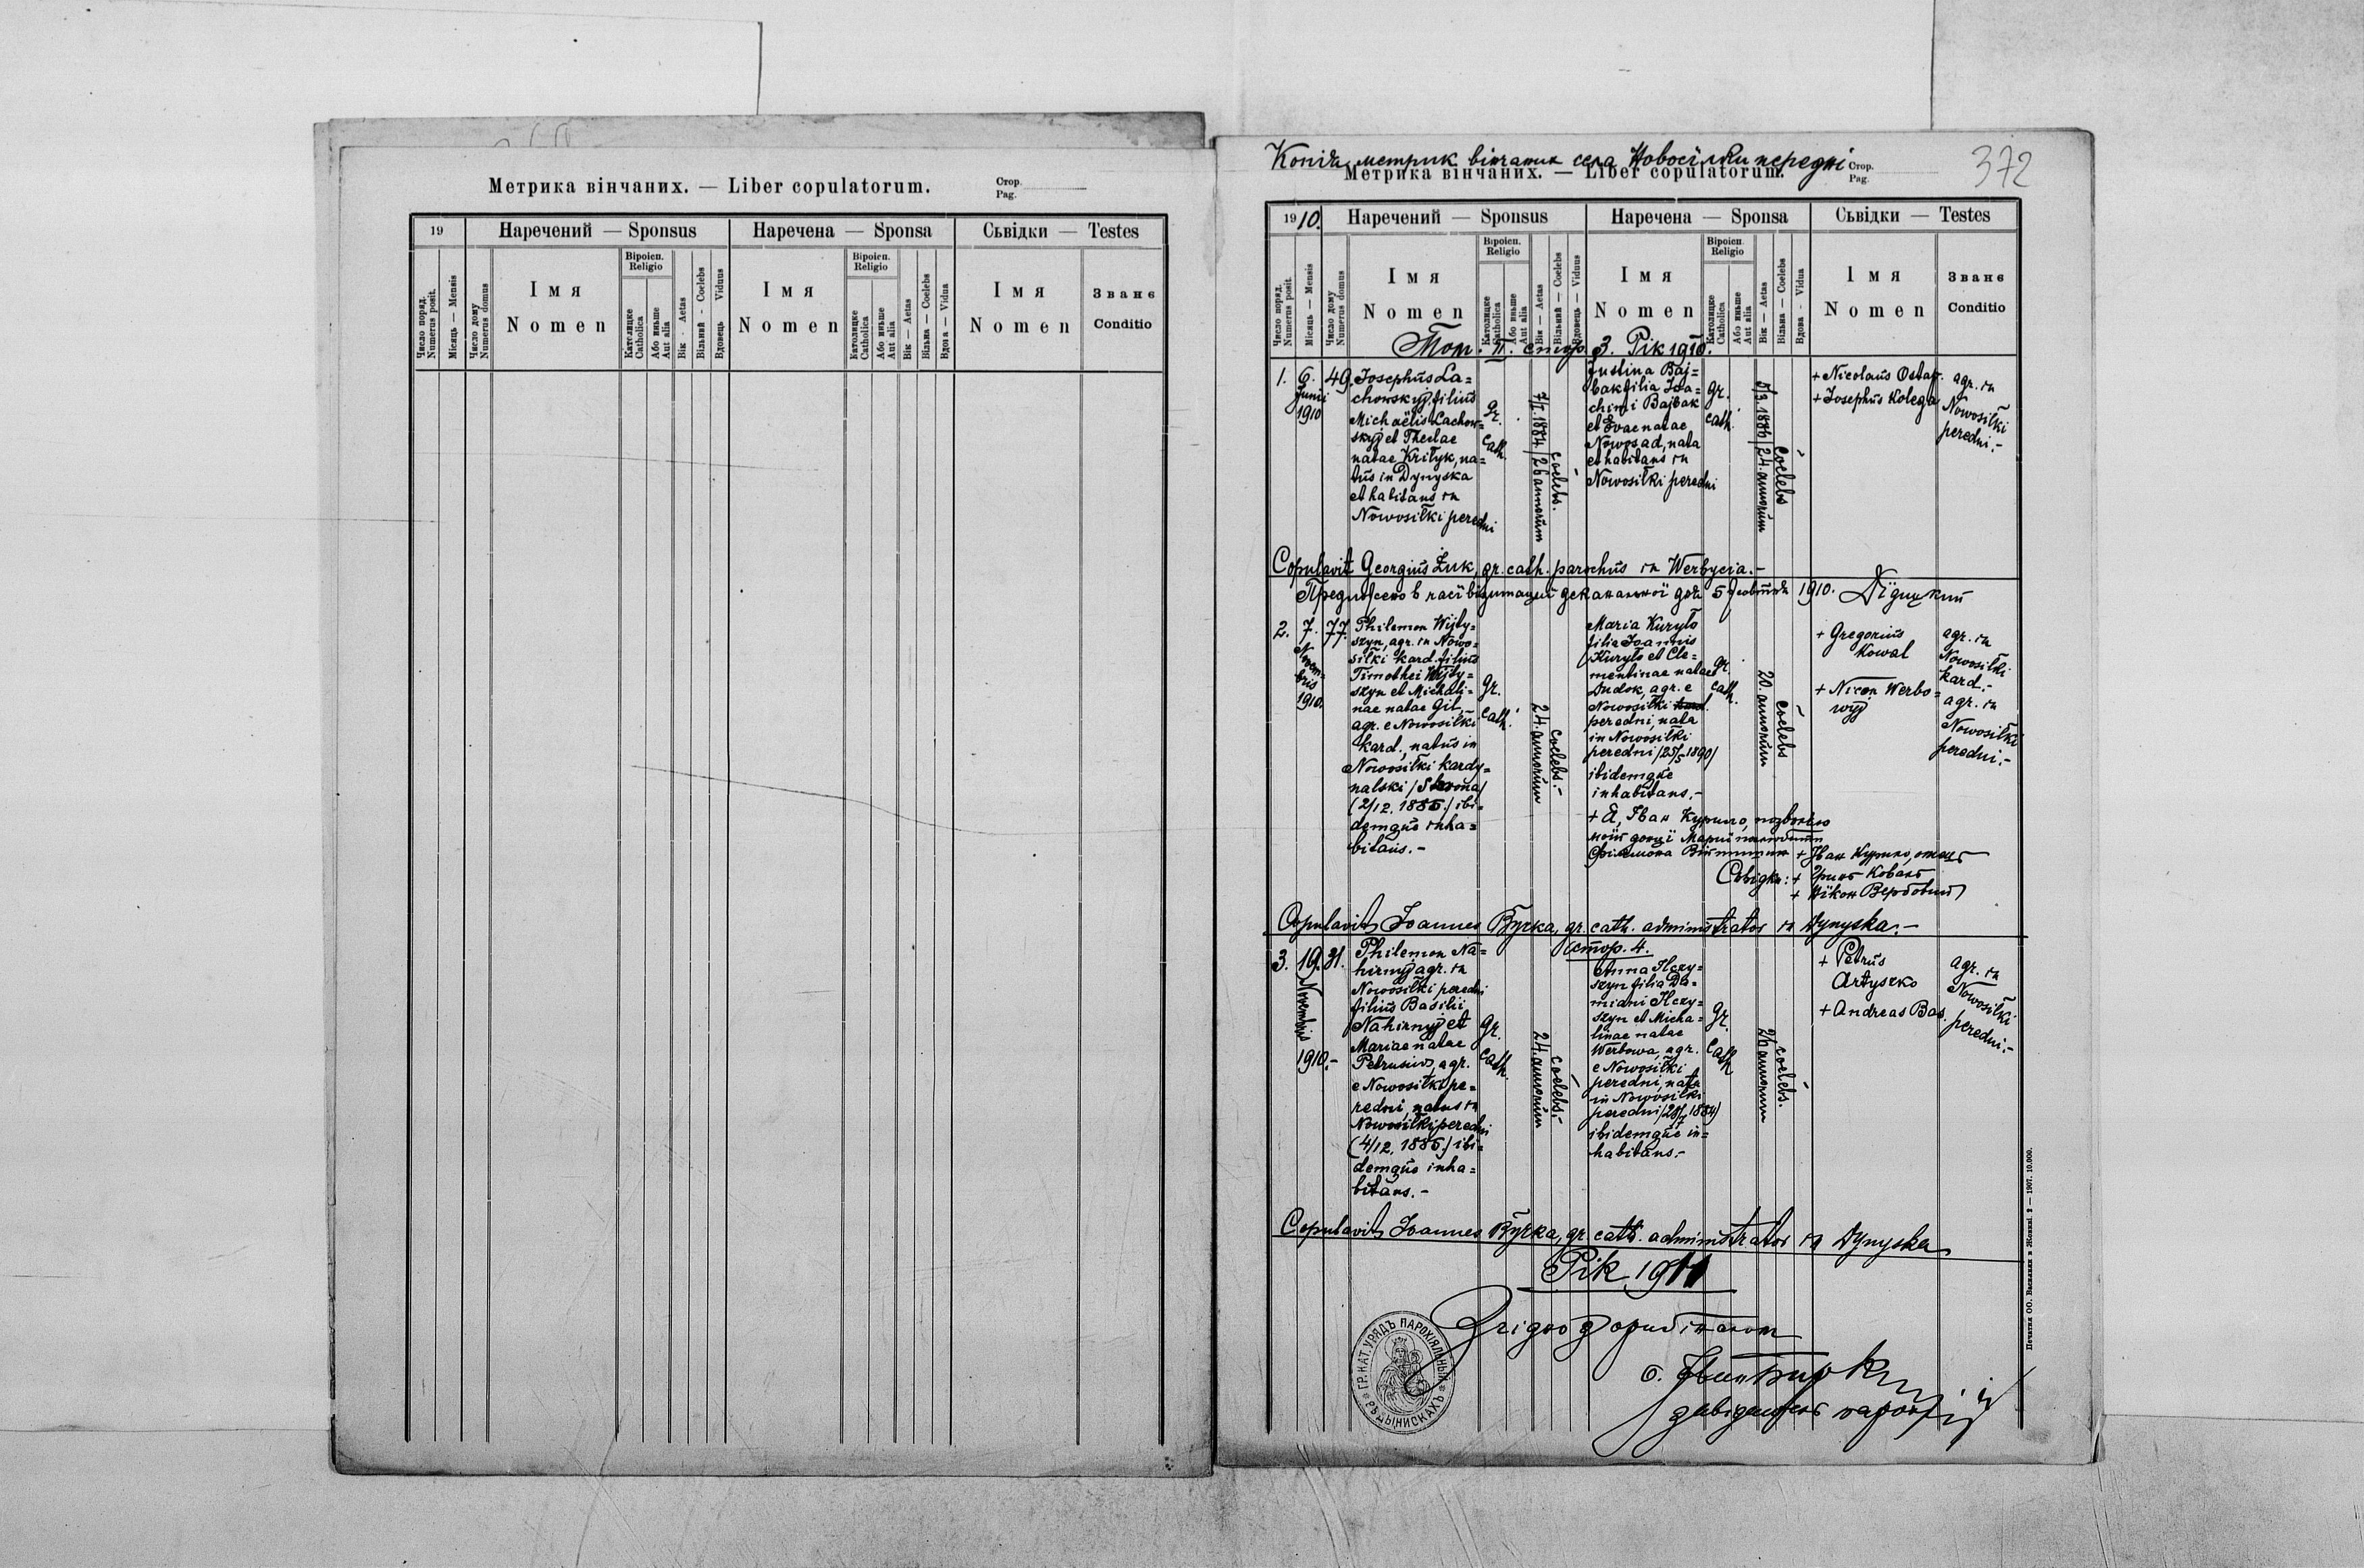 Метрика вінчаних. — Liber copulatorum.
Стор.
Pag.
19
Наречений — Sponsus
Наречена — Sponsa
Сьвідки — Testes
Число поряд.
Numerus posit.
Місяць — Mensis
Число дому
Numerus domus
Імя
Nomen
Віроісп.
Religio
Католицке
Catholica
Або иньше
Aut alia
Вік - Aetas
Вільний - Coelebs
Вдовець Viduus
Імя
Nomen
Віроісп.
Religio
Католицке
Catholica
Або иньше
Aut alia
Вік — Aetas
Вільна — Coelebs
Вдова — Vidua
Імя
Nomen
Званє
Conditio
Копія метрик вінчаних села Новосілки передні
Метрика вінчаних. — Liber copulatorum.
Стор.
Pag.
372
1910.
Наречений — Sponsus
Наречена — Sponsa
Сьвідки — Testes
Число поряд.
Numerus posit.
Місяць — Mensis
Число дому
Numerus domus
Імя
Nomen
Віроісп.
Religio
Католицке
Catholica
Або иньше
Aut alia
Вік — Aetas
Вільний — Coelebs
Вдовець — Viduus
Імя
Nomen
Віроісп.
Religio
Католицке
Catholica
Або иньше
Aut alia
Вік — Aetas
Вільна — Coelebs
Вдова - Vidua
Імя
Nomen
Званє
Conditio
Том. II. стор. 3. Рік 1910.
1.
6.
Junii
1910
49.
Josephus La=
chowskyj filius
Michaëlis Lachow=
skyj et Theclae
natae Krityk, na=
tus in Dynyska
et habitans in
Nowosilki peredni
gr.
cath.
7/I. 1884/26 annorum
coelebs.
Justina Baj=
bak filia Joa=
chimi Bajbak
et Evae natae
Nowosad, nata
et habitans in
Nowosilki peredni
gr.
cath.
5/3. 1886/24. annorum
coelebs
+ Nicolaus Ostap.
+ Josephus Kolega
agr. in
Nowosilki
peredni.-
Copulavit Georgius Żuk, gr. cath. parochus in Werbycia.-
1910.
2.
7.
Novem=
bris
1910.
77.
Philemon Wijty=
szyn, agr. in Nowo=
silki kard. filius
Timothei Wijty=
szyn et Michali=
nae natae Git,
agr. e Nowosilki
kard., natus in
Nowosilki kardy=
nalski
(2/12. 1886.) ibi=
demque inha=
bitans.-
gr.
cath.
24. annorum
coelebs.-
Maria Kuryło
filia Joannis
Kuryło et Cle=
mentinae natae
Dudok, agr. e
Nowosilki
peredni, nata
in Nowosilki
peredni /25/5 1890/
ibidemque
inhabitans.-
gr.
cath.
20. annorum
coelebs
+ Gregorius
Kowal
+ Nicon Werbo=
wyj
agr. in
Nowosilki
kard.-
agr. in
Nowosilki
peredni.-
+ Я, Іван Курило, позволяю
моїй донці Марії
+ Іван Курило, отець
Сьвідки: + Гринь Коваль
+ Нікон Вербовий
Copulavit Joannes Byrka, gr. cath. administrator in Dynyska.-
стор. 4.
3.
19.
Novembris
1910.-
31.
Philemon Na=
hirnyj agr. in
Nowosilki peredni
filius Basilii
Nahirnyj et
Mariae natae
Petrusiw, agr.
e Nowosilki pe=
redni, natus in
Nowosilki peredni
(4/12. 1886.) ibi=
demque inha=
bitans.-
gr.
cath.
24. annorum
coelebs.-
Anna Ilczy=
szyn filia Da=
miani Ilczy=
szyn et Micha=
linae natae
Werbowa, agr.
e Nowosilki
peredni, nata
in Nowosilki
ibidemque in=
habitans.-
gr.
cath
26 annorum
coelebs.
+ Petrus
Artyszko
+ Andreas Bas.
agr. in
Nowosilki
peredni.-
Copulavit Joannes Byrka, gr. cath. administrator in Dynyska
Рік 1911
Згідно з оригіналом
завідатель парохії
ГР. КАТ. УРЯДЪ ПАРОХІЯЛЬНЫЙ ВЪ ДЫНИСКАХЪ
Печатня ОО. Василіян в Жовкві. 2 — 1907. 10.000.